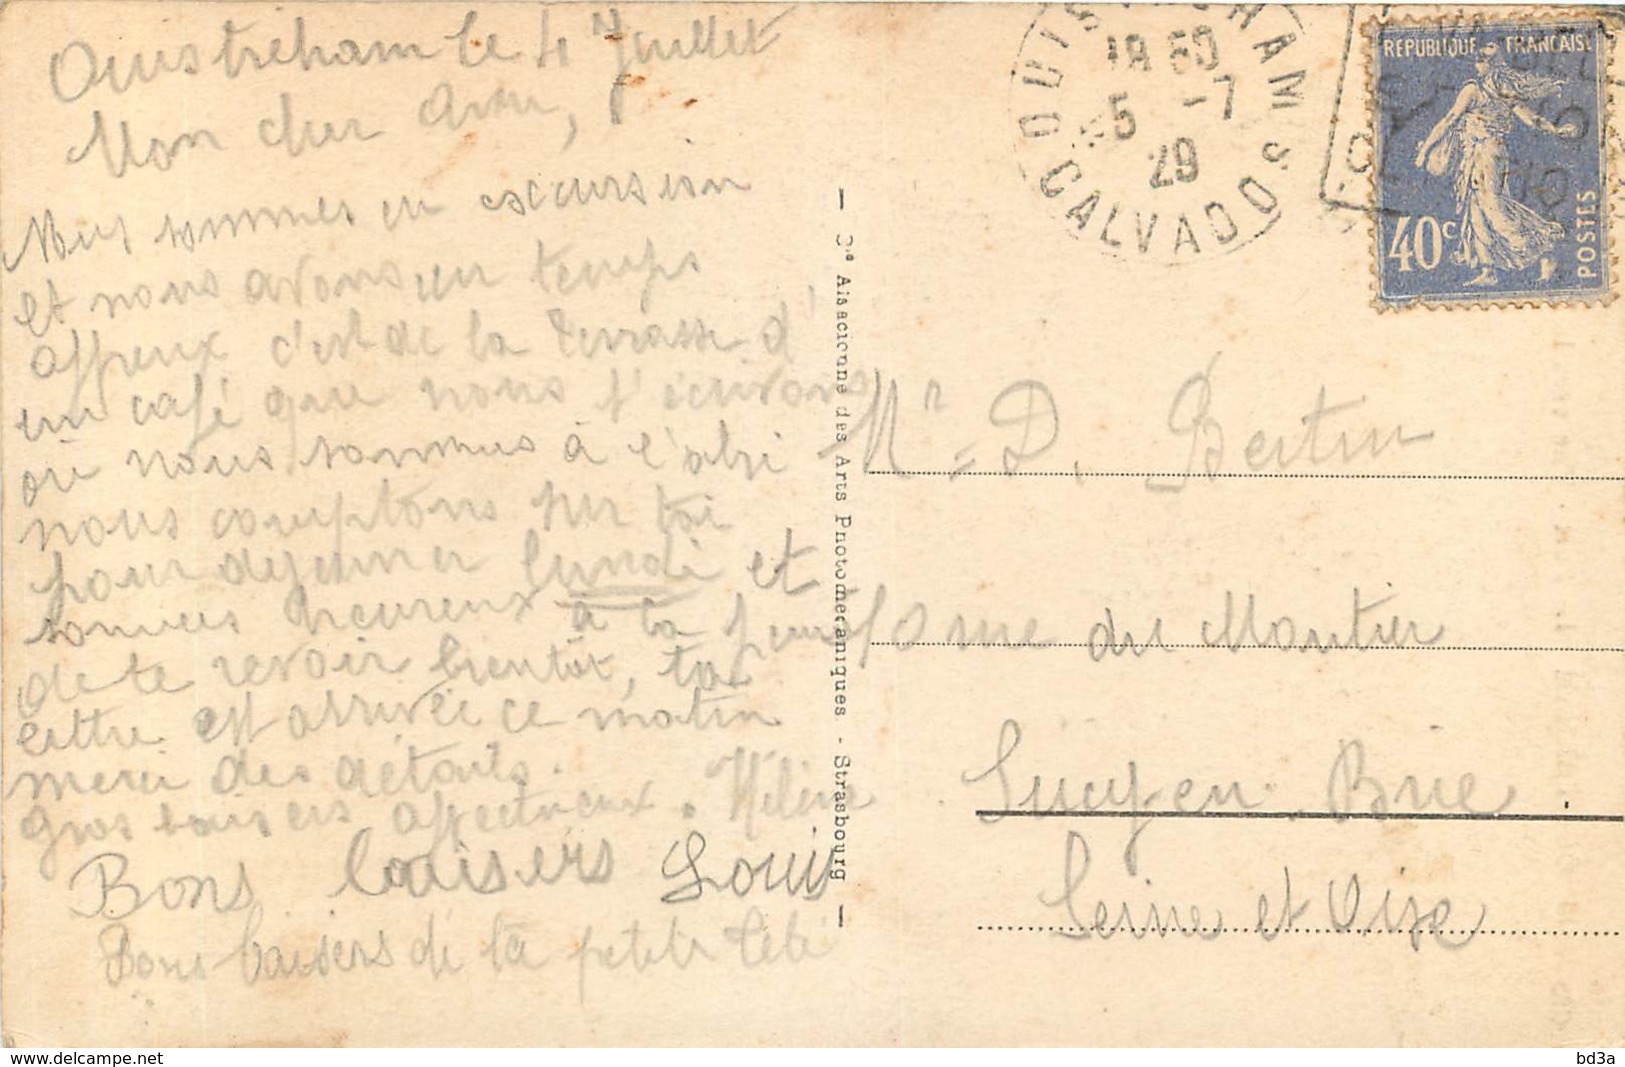 Ouistreham le 4 Juillet
Mon cher
Nous sommes en excursion
et nous avons un temps
affreux c'est de la terrasse d'
un café que nous t'écrivons
où nous sommes à l'abri
nous comptons sur toi
pour dejeuner lundi et
sommes heureux à la
de te revoir bientôt, ta
lettre est arrivée ce matin
merci des détails.
gros baisers affectueux. Hélène
Bons baisers Louis
Bons baisers de ta petite Bébé
OUISTREHAM
18 50
5 -7
29
CALVADOS
REPUBLIQUE FRANÇAISE
40c
POSTES
Cie Alsacienne des Arts Photomécaniques - Strasbourg
Mr = D. Bertin
ferme du Moutier
Sucy en Brie
Seine et Oise
www.delcampe.net
bd3a